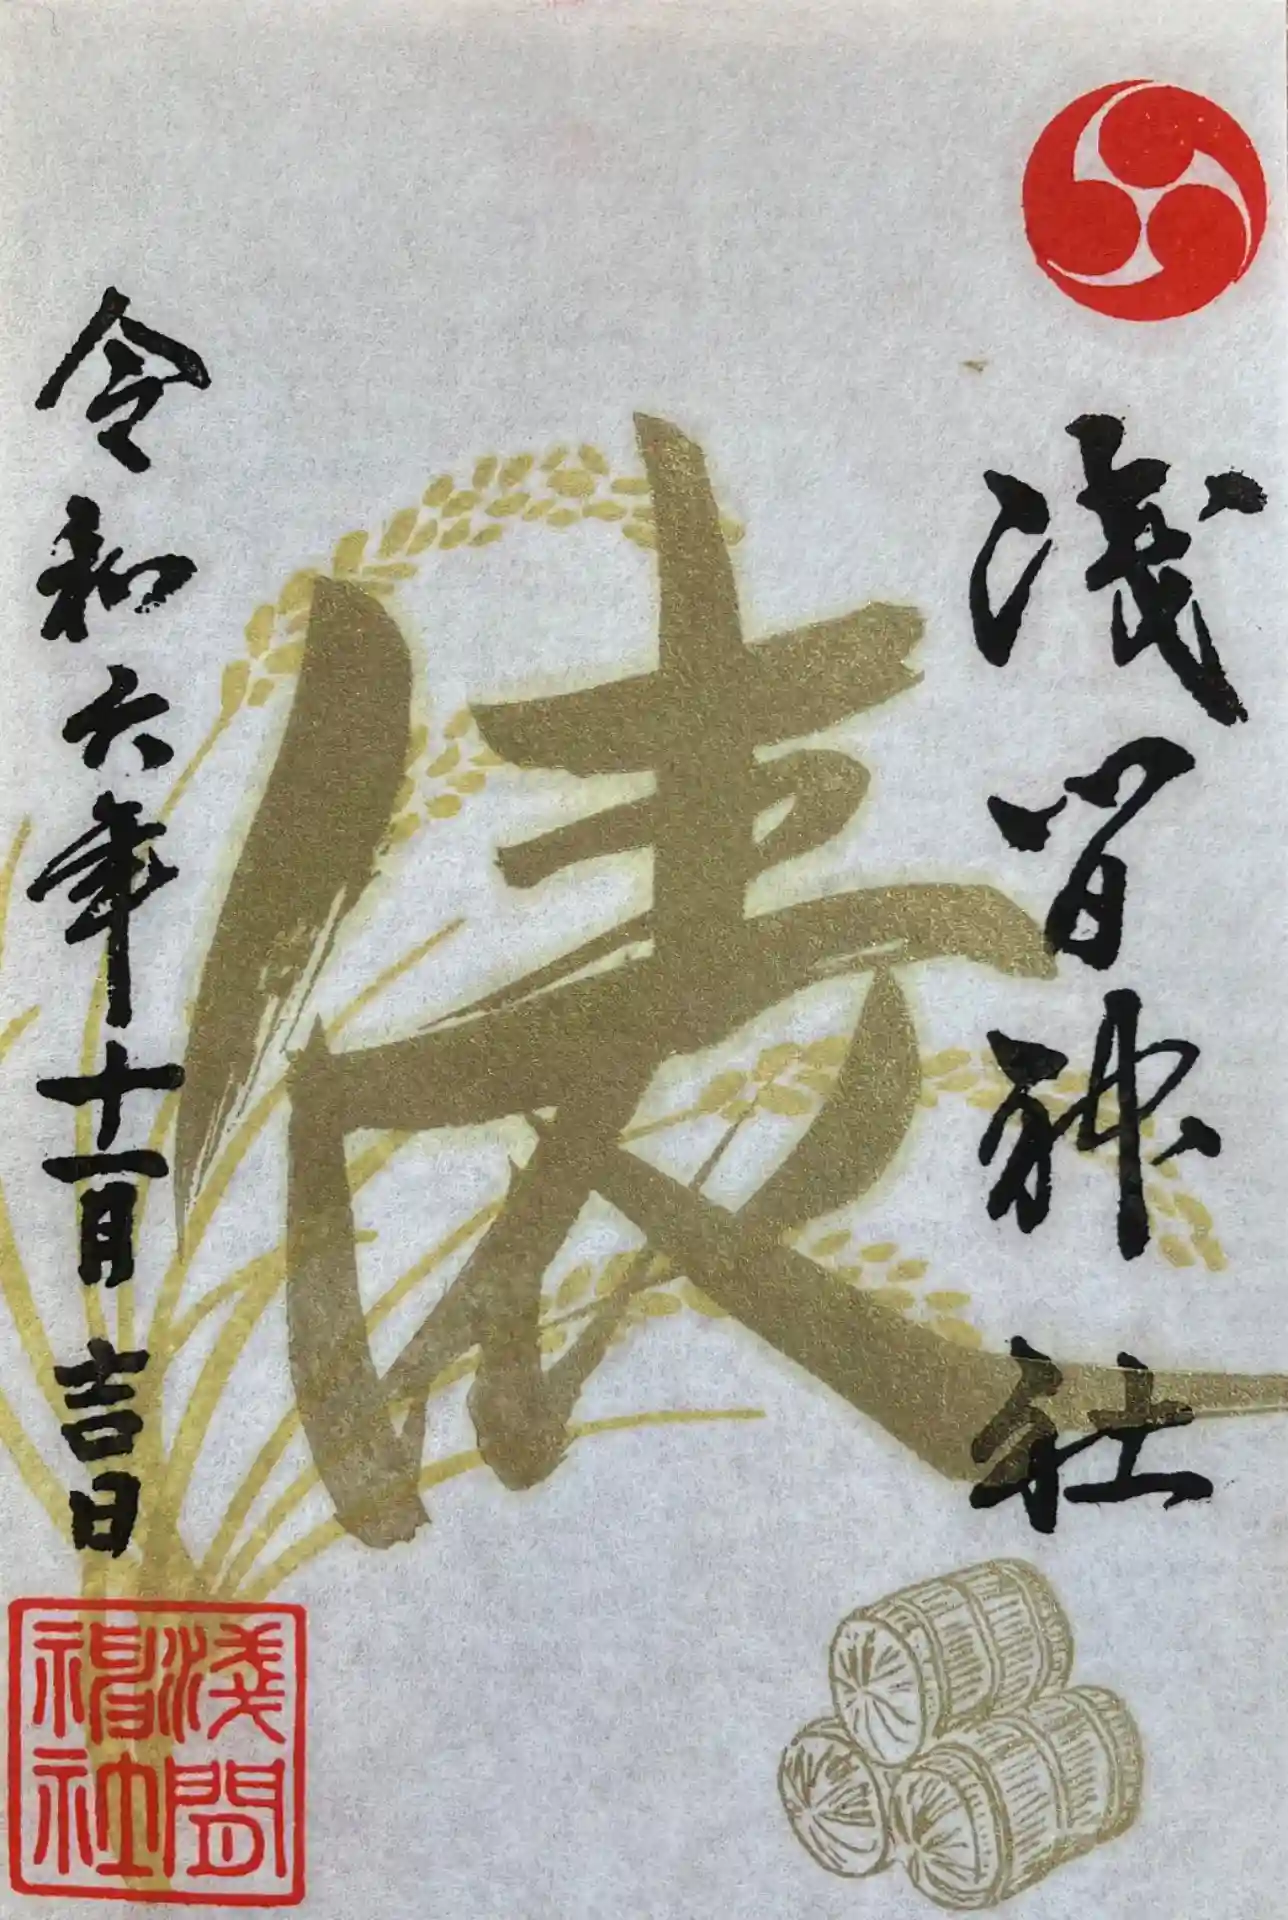 淺間神社
俵
令和六年十一月吉日
淺間
神社